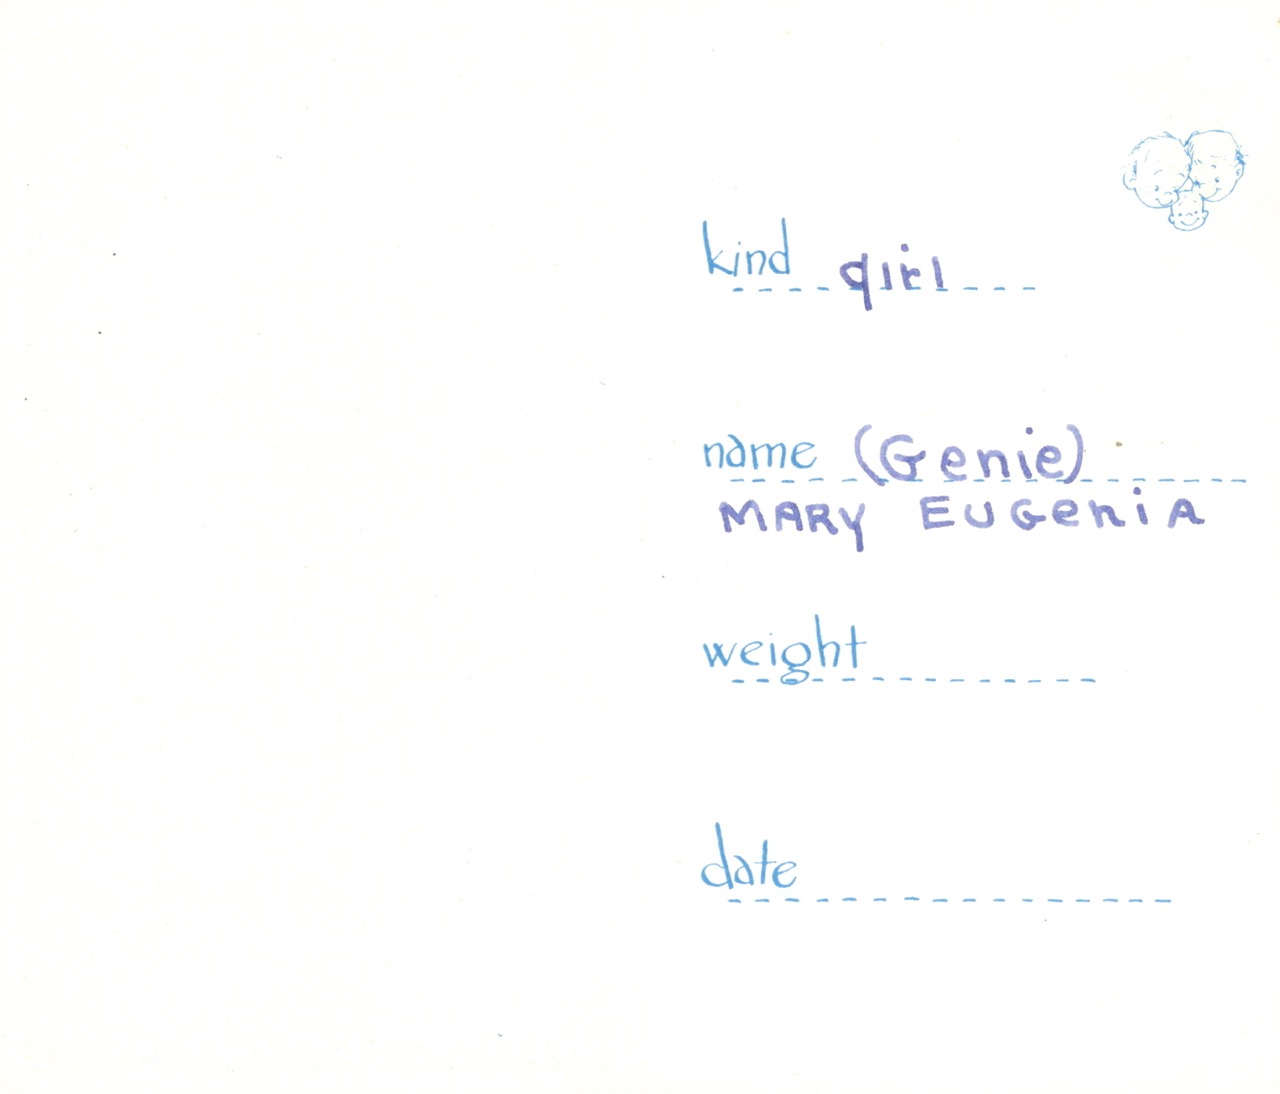 kind girl
name (Genie)
MARY EUGeniA
weight
date